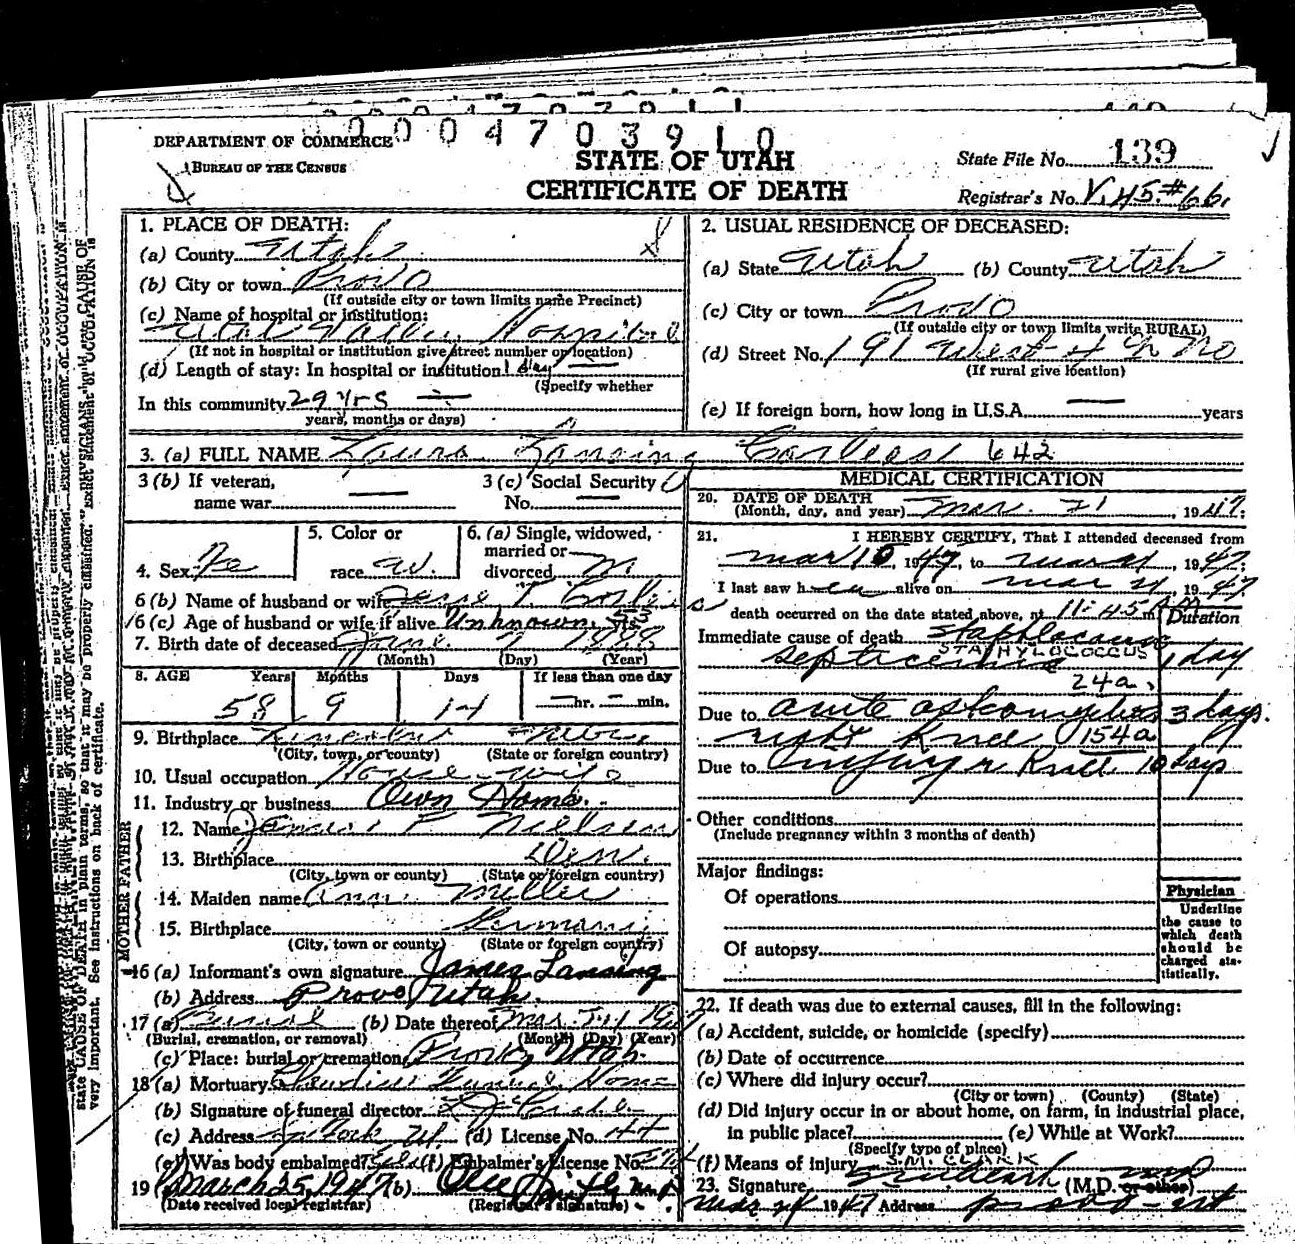 0000470391 0
DEPARTMENT OF COMMERCE
BUREAU OF THE CENSUS
STATE OF UTAH
CERTIFICATE OF DEATH
State File No. 139
Registrar's No. V.45.#66.
1. PLACE OF DEATH:
(a) County Utah
(b) City or town Provo
(If outside city or town limits name Precinct)
(c) Name of hospital or institution:
Utah Valley Hospital
(If not in hospital or institution give street number or location)
(d) Length of stay: In hospital or institution 1 day
(Specify whether
In this community 29 yrs
years, months or days)
2. USUAL RESIDENCE OF DECEASED:
(a) State Utah (b) County Utah
(c) City or town Provo
(If outside city or town limits write RURAL)
(d) Street No. 191 West 4 No
(If rural give location)
(e) If foreign born, how long in U.S.A. years
3. (a) FULL NAME Laura Lansing Corless 642
3 (b) If veteran,
name war
3 (c) Social Security
No.
4. Sex Fe
5. Color or
race W.
6. (a) Single, widowed,
married or
divorced M
6 (b) Name of husband or wife T. Corless
6 (c) Age of husband or wife if alive Unknown. 53 yrs
7. Birth date of deceased June 7 1888
(Month) (Day) (Year)
8. AGE Years Months Days If less than one day
58 9 14 hr. min.
9. Birthplace Nebr.
(City, town, or county) (State or foreign country)
10. Usual occupation House-wife
11. Industry or business Own Home.
FATHER
12. Name James P Nielsen
13. Birthplace Den.
(City, town or county) (State or foreign country)
MOTHER
14. Maiden name Ann Miller
15. Birthplace Germany
(City, town or county) (State or foreign country)
16 (a) Informant's own signature James Lansing
(b) Address Provo Utah.
17 (a) Burial (b) Date thereof Mar 1947
(Burial, cremation, or removal) (Month) (Day) (Year)
(c) Place: burial or cremation Provo, Utah.
18 (a) Mortuary Home
(b) Signature of funeral director
(c) Address (d) License No. 44
(e) Was body embalmed? Yes (f) Embalmer's License No.
19 (a) March 25, 1947 (b)
(Date received local registrar) (Registrar's signature)
MEDICAL CERTIFICATION
20. DATE OF DEATH
(Month, day, and year) Mar. 21, 1947.
21. I HEREBY CERTIFY, That I attended deceased from
Mar 10, 1947, to Mar 21, 1947;
I last saw her alive on Mar 21 1947
death occurred on the date stated above, at 11:45 m Duration
Immediate cause of death
STAPHYLOCOCCUS
septicemia 1 day
24a.
Due to acute 3 days.
right Knee 154a
Due to injury r Knee 10 days
Other conditions
(Include pregnancy within 3 months of death)
Major findings:
Of operations
Of autopsy
Physician
Underline
the cause to
which death
should be
charged sta-
tistically.
22. If death was due to external causes, fill in the following:
(a) Accident, suicide, or homicide (specify)
(b) Date of occurrence
(c) Where did injury occur?
(City or town) (County) (State)
(d) Did injury occur in or about home, on farm, in industrial place,
in public place? (e) While at Work?
(Specify type of place)
(f) Means of injury
S.M. CLARK
23. Signature (M.D. or other) MD
Mar 24 1947 Address Provo - Ut